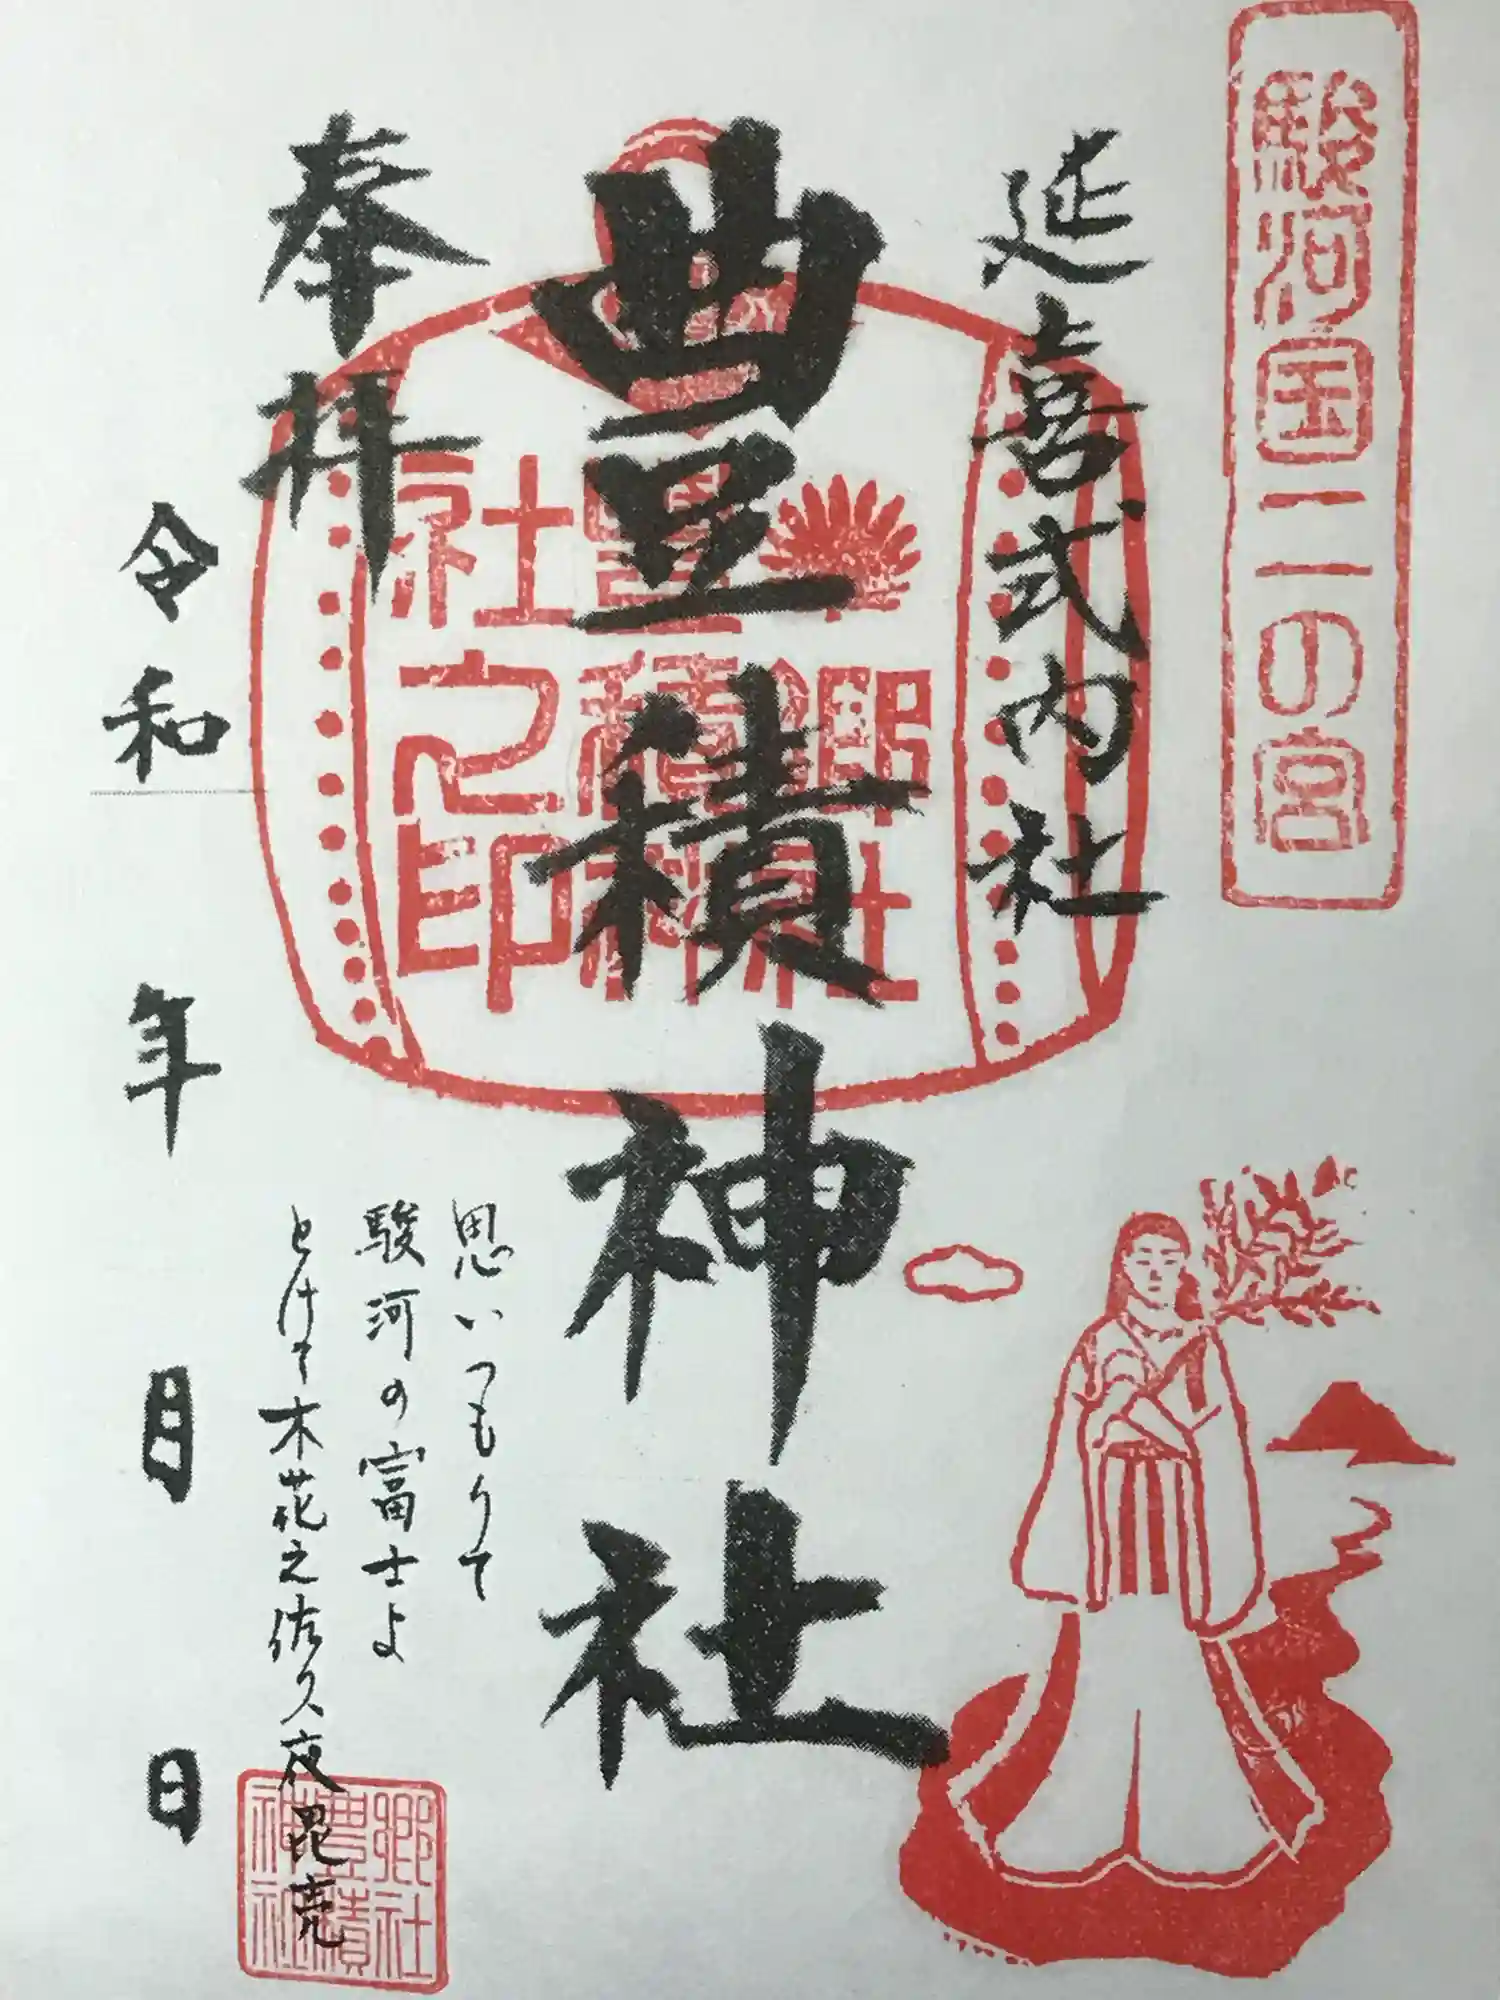 駿河国二の宮
延喜式内社
豊積神社
郷社
豊積神
社之印
奉拝
思いつもりて
駿河の富士よ
とけて木花之佐久夜毘売
令和 年 月 日
郷社
豊積
神社